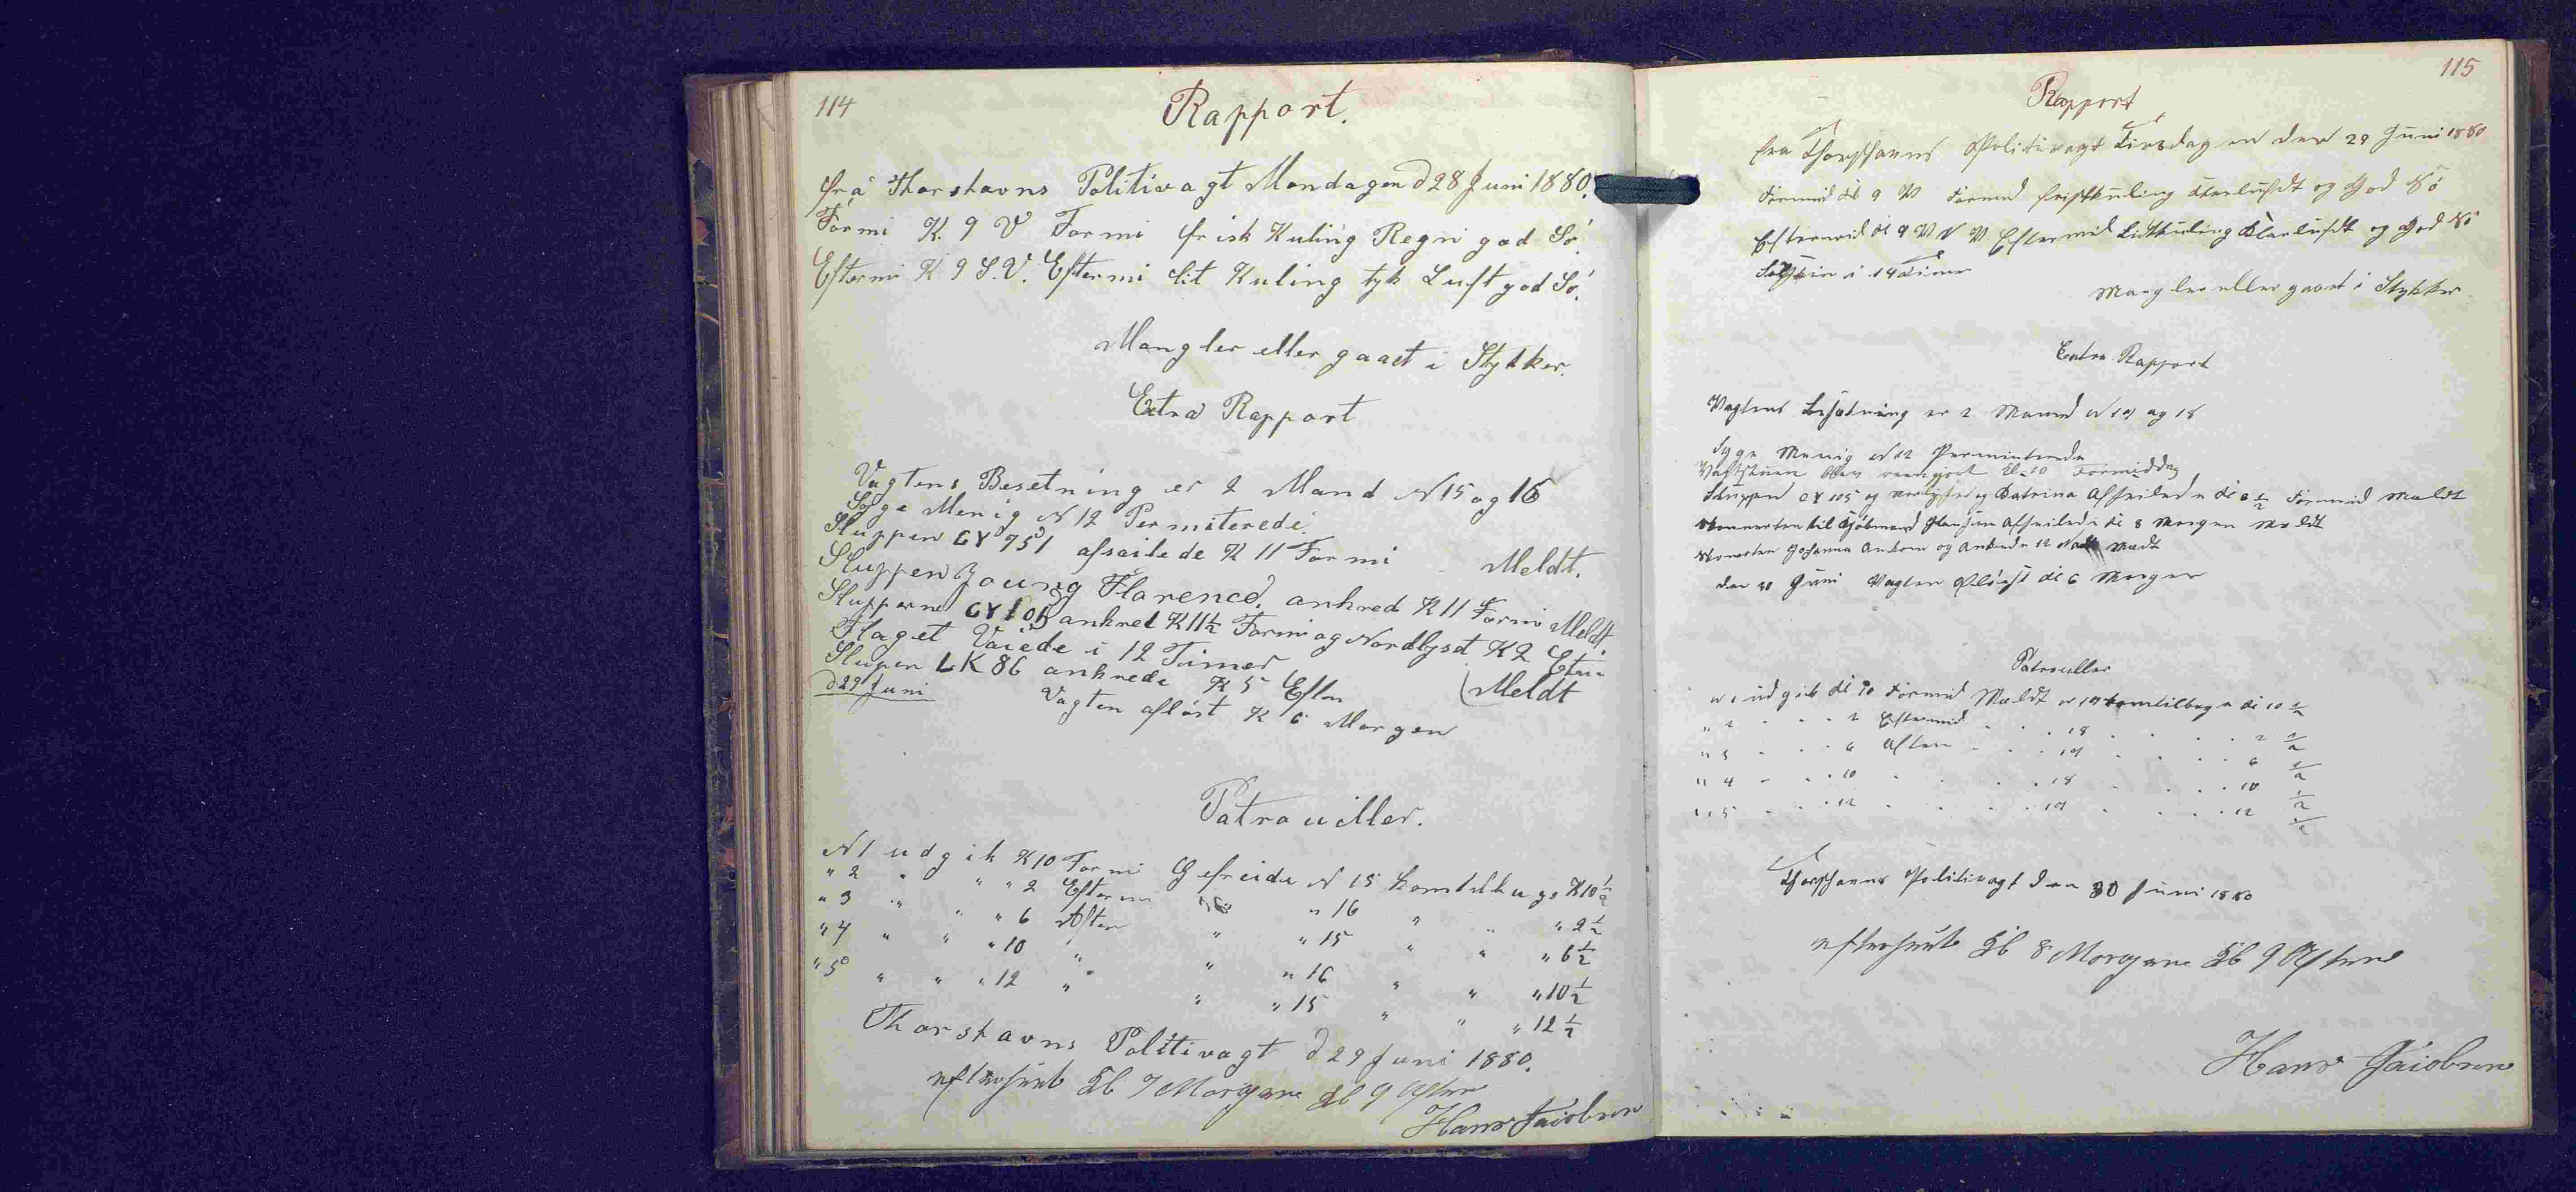 114
Rapport.
fra Thorshavns Politivagt Mandagen d 28 Juni 1880.
Formi K. 9 V Formi frisk Kuling Regn god Sø.
Eftermi K 9 S.V. Eftermi lit Kuling tyk Luft god Sø.
Mangler eller gaaet i Stykker.
Extra Rapport
Vagtens Besetning er 2 Mand N 15 og 16
Syge Menig N 12 Permiterede
Sluppen GY 751 afsailede K 11 Formi Meldt.
Sluppen Young Florence, ankred K 11 Formi Meldt
Slupperne GY 105 ankret K 11½ Formi og Nordlyset K 2 Efter
Flaget Vaiede i 12 Timer
Slupen LK 86 ankrede K 5 Efter Meldt
d 29 Juni Vagten afløst K 6 Morgen
Patrouiller.
N 1 udgik K 10 Formi Gefreide N 15 komtilbage K 10½
" 2 " " " 2 Eftermi " 16 " " " 2½
" 3 " " " 6 Aften " " 15 " " " 6½
" 4 " " " 10 " " " 16 " " " 10½
" 5 " " " 12 " " " 15 " " " 12½
Thorshavns Politivagt d 29 Juni 1880.
efterseet Kl 7 Morgene Kl 9 Aften
Hans Jacobsen
115
Rapport
fra Thorshavns Politivagt Tirsdagen den 29 Juni 1880
Formid Kl 9 V Formid friskkuling Klarluft og God Sø
Eftermid Kl 9 V N V Eftermid Litkuling Klarluft og God Sø
Solskin i 14 Timer
Mangler eller gaaet i Stykker
Extra Rapport
Vagtens Besætning er 2 Mand N 19 og 18
Syge Menig N 12 Permiterede
Vagtstuen blev rengjort Kl 10 Formiddag
Sluppen GY 105 og Nordlyset og Katrina Afseilede Kl 6½ Formid Meldt
Skonnerten til Kjøbmand Hansen Afseilede Kl 8 Morgen Meldt
Skonerten Johanna Ankrede 12 Nat Meldt
den 30 Juni Vagten Afløst Kl 6 Morgen
Patrouller
N 1 udgik Kl 10 Formid Meldt N 19 kom tilbage Kl 10 ½
" 2 " " " 2 Eftermid " " 18 " " " 2 ½
" 3 " " " 6 Aften " " 19 " " " 6 ½
" 4 " " " 10 " " " 18 " " " 10 ½
" 5 " " " 12 " " " 19 " " " 12 ½
Thorshavns Politivagt den 30 Juni 1880
efterseet Kl 8 Morgene Kl 9 Aftene
Hans Jacobsen